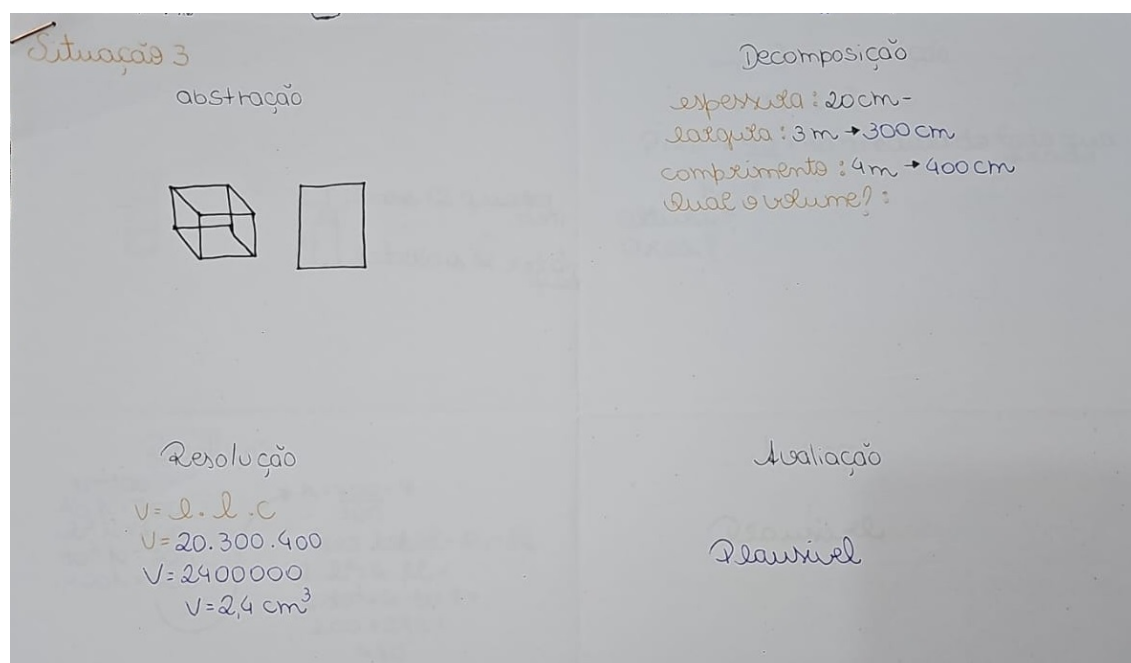 Situação 3
abstração
Decomposição
espessura : 20cm-
largura : 3m → 300cm
comprimento : 4m → 400cm
Qual o volume? :
Resolução
V= e. l. c
V= 20.300.400
V= 2400000
V= 2,4 cm³
Avaliação
Plausível